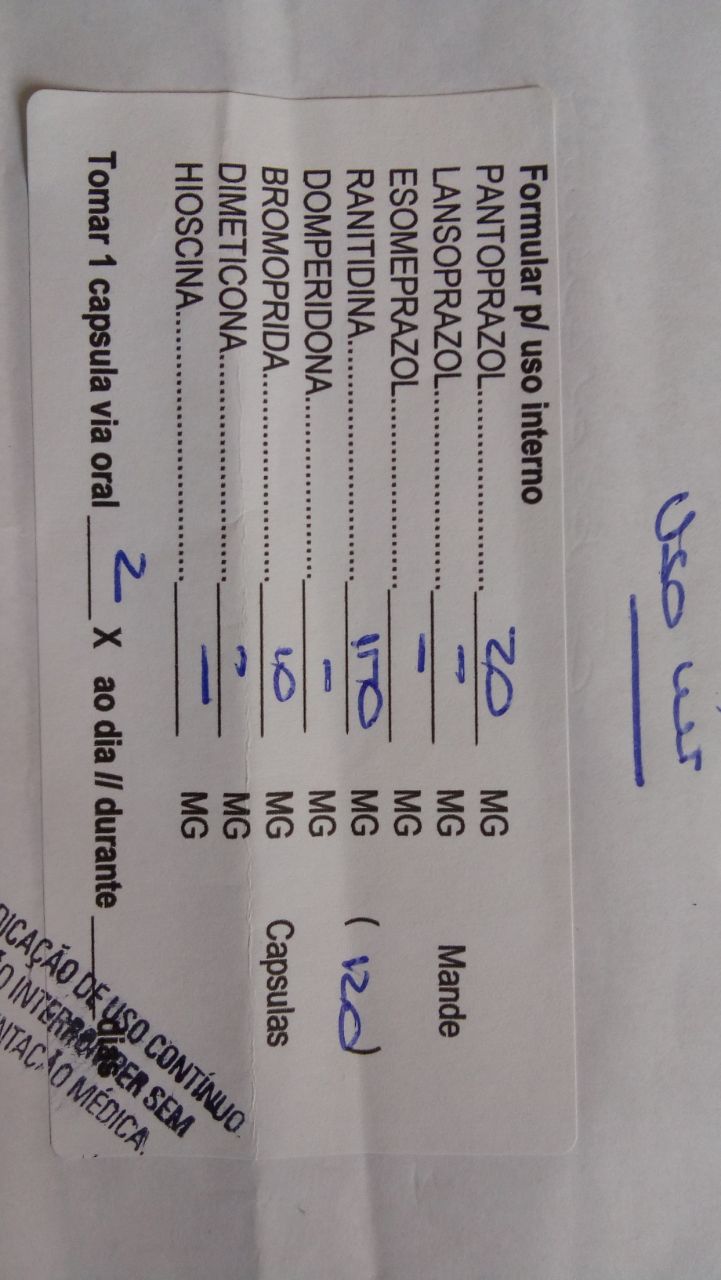 Uso int
Formular p/ uso interno
PANTOPRAZOL..........................20 MG
LANSOPRAZOL..........................- MG
ESOMEPRAZOL..........................- MG
RANITIDINA..............................150 MG
DOMPERIDONA........................- MG
BROMOPRIDA...........................10 MG
DIMETICONA.............................- MG
HIOSCINA..................................- MG
Mande
(120)
Capsulas
Tomar 1 capsula via oral 2 X ao dia // durante ______ dias
DICAÇÃO DE USO CONTÍNUO.
O INTERROMPER SEM
NTAÇÃO MÉDICA.